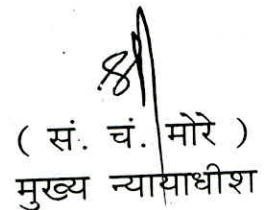 ( सं. चं. मोरे )
मुख्य न्यायाधीश